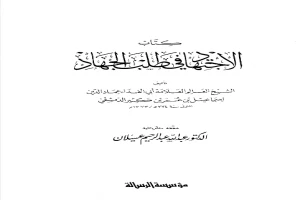 كتاب
الاجتهاد في طلب الجهاد
تأليف
الشيخ العالم العلامة أبي الفداء عماد الدين
إسماعيل بن عمر بن كثير الدمشقي
الدكتور عبد الله عبد الرحيم عسيلان
مؤسسة الرسالة